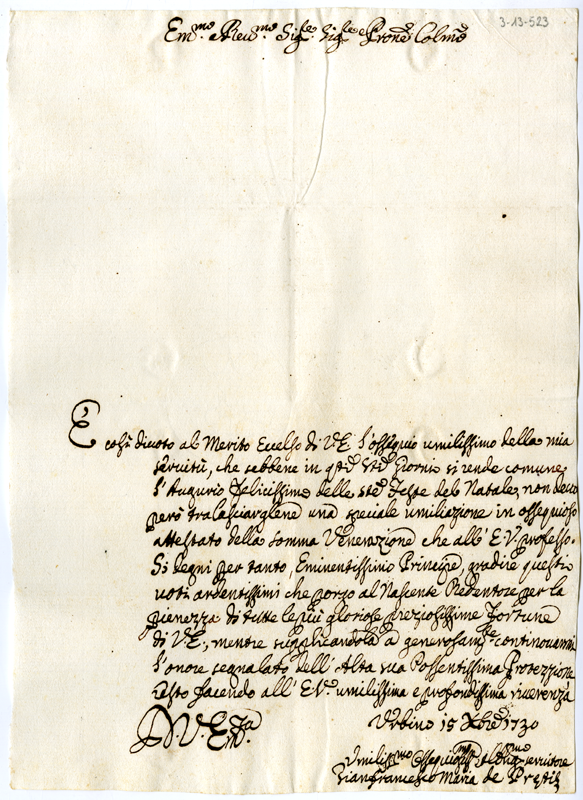 3-13-523
Em.mo e Reu.mo Sig.re Sig.re e Prone Colmo
È cosi diuoto al Merito Eccelso di V.E. l'ossequio umilissimo della mia
seruitù, che sebbene in q.ti S.ti Giorni si rende comune
l'Augurio felicissimo delle S.te Feste del Natale, non deuo
però tralasciarglene una speciale umiliazione in ossequioso
attestato della somma Venerazione che all' E.V. professo.
Si degni per tanto, Eminentissimo Principe, gradire questi
uoti ardentissimi che porgo al Nascente Redentore per la
pienezza di tutte le più gloriose preziosissime Fortune
di V.E., mentre supplicandola a generosam.te continouarmi
l'onore segnalato dell' Alta sua Possentissima Protezzione
resto facendo all' E.V. umilissima e profondissima riuerenza
D V. Em.za
Urbino 15 Xbre 1730
Umiliss.mo Ossequios.mo ed Oblig.mo seruitore
Gianfrancesco Maria de